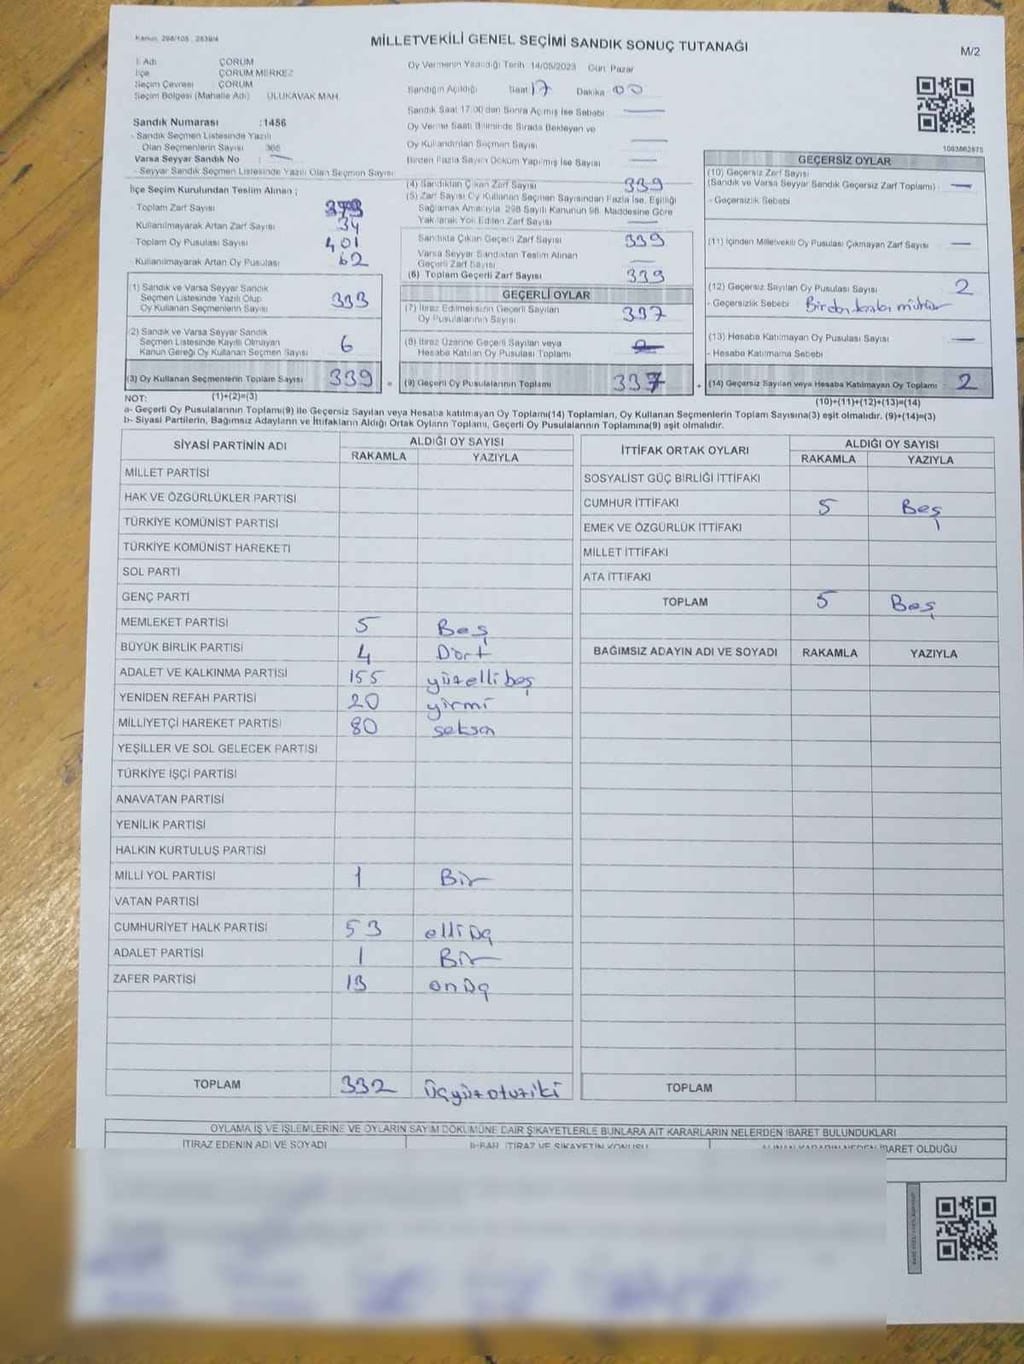 Kanun: 298/105 , 2839/4
MİLLETVEKİLİ GENEL SEÇİMİ SANDIK SONUÇ TUTANAĞI
M/2
İl Adı : ÇORUM
İlçe : ÇORUM MERKEZ
Seçim Çevresi : ÇORUM
Seçim Bölgesi (Mahalle Adı) : ULUKAVAK MAH.
Oy Vermenin Yapıldığı Tarih 14/05/2023 Gün: Pazar
Sandığın Açıldığı Saat 17 Dakika 00
Sandık Saat 17:00'dan Sonra Açılmış İse Sebebi
Oy Verme Saati Bitiminde Sırada Bekleyen ve
Oy Kullandırılan Seçmen Sayısı
Birden Fazla Sayım Döküm Yapılmış İse Sayısı
1083862875
Sandık Numarası :1456
- Sandık Seçmen Listesinde Yazılı
Olan Seçmenlerin Sayısı
Varsa Seyyar Sandık No :
- Seyyar Sandık Seçmen Listesinde Yazılı Olan Seçmen Sayısı
İlçe Seçim Kurulundan Teslim Alınan ;
- Toplam Zarf Sayısı 373
Kullanılmayarak Artan Zarf Sayısı 34
Toplam Oy Pusulası Sayısı 401
Kullanılmayarak Artan Oy Pusulası 62
(1) Sandık ve Varsa Seyyar Sandık
Seçmen Listesinde Yazılı Olup
Oy Kullanan Seçmenlerin Sayısı 333
(2) Sandık ve Varsa Seyyar Sandık
Seçmen Listesinde Kayıtlı Olmayan
Kanun Gereği Oy Kullanan Seçmen Sayısı 6
(3) Oy Kullanan Seçmenlerin Toplam Sayısı 339
(1)+(2)=(3)
(4) Sandıktan Çıkan Zarf Sayısı 339
(5) Zarf Sayısı Oy Kullanan Seçmen Sayısından Fazla İse, Eşitliği
Sağlamak Amacıyla 298 Sayılı Kanunun 98. Maddesine Göre
Yakılarak Yok Edilen Zarf Sayısı
Sandıkta Çıkan Geçerli Zarf Sayısı 339
Varsa Seyyar Sandıktan Teslim Alınan
Geçerli Zarf Sayısı
(6) Toplam Geçerli Zarf Sayısı 339
GEÇERLİ OYLAR
(7) İtiraz Edilmeksizin Geçerli Sayılan
Oy Pusulalarının Sayısı 337
(8) İtiraz Üzerine Geçerli Sayılan veya
Hesaba Katılan Oy Pusulası Toplamı
(9) Geçerli Oy Pusulalarının Toplamı 337
GEÇERSİZ OYLAR
(10) Geçersiz Zarf Sayısı
(Sandık ve Varsa Seyyar Sandık Geçersiz Zarf Toplamı) : —
- Geçersizlik Sebebi
(11) İçinden Milletvekili Oy Pusulası Çıkmayan Zarf Sayısı —
(12) Geçersiz Sayılan Oy Pusulası Sayısı 2
- Geçersizlik Sebebi Birden fazla mühür
(13) Hesaba Katılmayan Oy Pusulası Sayısı —
- Hesaba Katılmama Sebebi
(14) Geçersiz Sayılan veya Hesaba Katılmayan Oy Toplamı 2
(10)+(11)+(12)+(13)=(14)
NOT:
a- Geçerli Oy Pusulalarının Toplamı(9) ile Geçersiz Sayılan veya Hesaba katılmayan Oy Toplamı(14) Toplamları, Oy Kullanan Seçmenlerin Toplam Sayısına(3) eşit olmalıdır. (9)+(14)=(3)
b- Siyasi Partilerin, Bağımsız Adayların ve İttifakların Aldığı Ortak Oyların Toplamı, Geçerli Oy Pusulalarının Toplamına(9) eşit olmalıdır.
SİYASİ PARTİNİN ADI ALDIĞI OY SAYISI
RAKAMLA YAZIYLA
MİLLET PARTİSİ
HAK VE ÖZGÜRLÜKLER PARTİSİ
TÜRKİYE KOMÜNİST PARTİSİ
TÜRKİYE KOMÜNİST HAREKETİ
SOL PARTİ
GENÇ PARTİ
MEMLEKET PARTİSİ 5 Beş
BÜYÜK BİRLİK PARTİSİ 4 Dört
ADALET VE KALKINMA PARTİSİ 155 yüzellibeş
YENİDEN REFAH PARTİSİ 20 yirmi
MİLLİYETÇİ HAREKET PARTİSİ 80 seksen
YEŞİLLER VE SOL GELECEK PARTİSİ
TÜRKİYE İŞÇİ PARTİSİ
ANAVATAN PARTİSİ
YENİLİK PARTİSİ
HALKIN KURTULUŞ PARTİSİ
MİLLİ YOL PARTİSİ 1 Bir
VATAN PARTİSİ
CUMHURİYET HALK PARTİSİ 53 elli üç
ADALET PARTİSİ 1 Bir
ZAFER PARTİSİ 13 on üç
TOPLAM 332 Üçyüzotuziki
İTTİFAK ORTAK OYLARI ALDIĞI OY SAYISI
RAKAMLA YAZIYLA
SOSYALİST GÜÇ BİRLİĞİ İTTİFAKI
CUMHUR İTTİFAKI 5 Beş
EMEK VE ÖZGÜRLÜK İTTİFAKI
MİLLET İTTİFAKI
ATA İTTİFAKI
TOPLAM 5 Beş
BAĞIMSIZ ADAYIN ADI VE SOYADI RAKAMLA YAZIYLA
TOPLAM
OYLAMA İŞ VE İŞLEMLERİNE VE OYLARIN SAYIM DÖKÜMÜNE DAİR ŞİKAYETLERLE BUNLARA AİT KARARLARIN NELERDEN İBARET BULUNDUKLARI
İTİRAZ EDENİN ADI VE SOYADI İTİRAZ VE ŞİKAYETİN KONUSU İBARET OLDUĞU